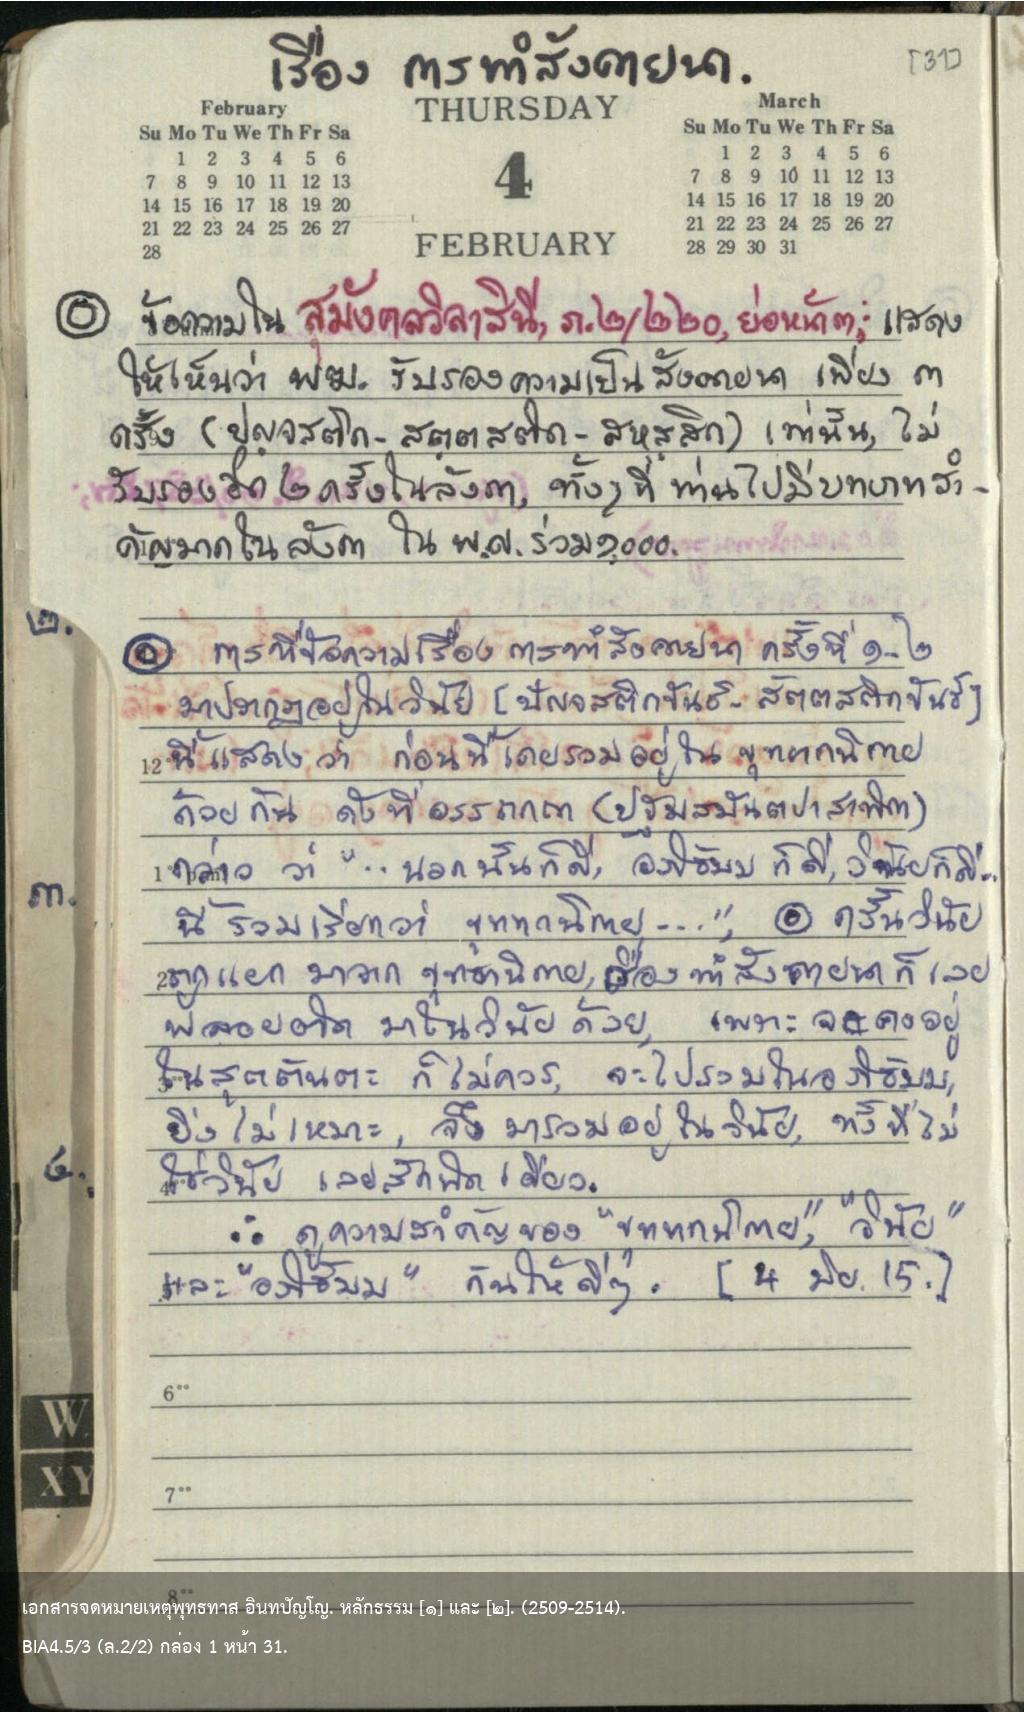 เรื่อง การทำสังคายนา.
[31]
February
Su Mo Tu We Th Fr Sa
1 2 3 4 5 6
7 8 9 10 11 12 13
14 15 16 17 18 19 20
21 22 23 24 25 26 27
28
THURSDAY
4
FEBRUARY
March
Su Mo Tu We Th Fr Sa
1 2 3 4 5 6
7 8 9 10 11 12 13
14 15 16 17 18 19 20
21 22 23 24 25 26 27
28 29 30 31
ข้อความใน สุมังคลวิลาสินี, ภ.๒/๒๒๐, ย่อหน้า๓; แสดง
ให้เห็นว่า พฆ. รับรองความเป็นสังคายนา เพียง ๓
ครั้ง (ปญฺจสติก - สตฺตสติก - สหสฺสิก) เท่านั้น, ไม่
รับรองอีก ๒ ครั้งในลังกา, ทั้งๆ ที่ ท่านไปมีบทบาทสำ-
คัญมากใน ลังกา ใน พ.ศ. ร่วม ๑,๐๐๐.
๒.
การที่ข้อความเรื่อง การทำสังคายนา ครั้งที่ ๑-๒
มาปรากฏอยู่ในวินัย [ปัญจสติกขันธ์ - สัตตสติกขันธ์]
12 นี้แสดงว่า ก่อนนี้โดยรวมอยู่ใน ขุททกนิกาย
ด้วยกัน ดังที่ อรรถกถา (ปฐมสมันตปาสาทิกา)
กล่าว ว่า ".. นอกนั้นก็ดี, อภิธัมม ก็ดี, วินัยก็ดี..
๓.
นี้ รวมเรียกว่า ขุททกนิกาย ...", ครั้นวินัย
ถูกแยก มาจาก ขุททกนิกาย, เรื่อง ทำสังคายนา ก็ เลย
พลอยติด มาในวินัย ด้วย, เพราะ จะ คงอยู่
ในสุตตันตะ ก็ไม่ควร, จะไปรวมในอภิธัมม,
ยิ่งไม่เหมาะ, จึง มารวมอยู่ในวินัย, ทั้งที่ไม่
๔.
ใช่วินัย เลยสักนิด เดียว.
∴ ดูความสำคัญของ "ขุททกนิกาย," "วินัย"
และ "อภิธัมม" กันให้ดีๆ. [4 มิย. 15.]
6⁰⁰
7⁰⁰
8⁰⁰
W
XY
เอกสารจดหมายเหตุพุทธทาส อินทปัญโญ. หลักธรรม [๑] และ [๒]. (2509-2514).
BIA4.5/3 (ล.2/2) กล่อง 1 หน้า 31.